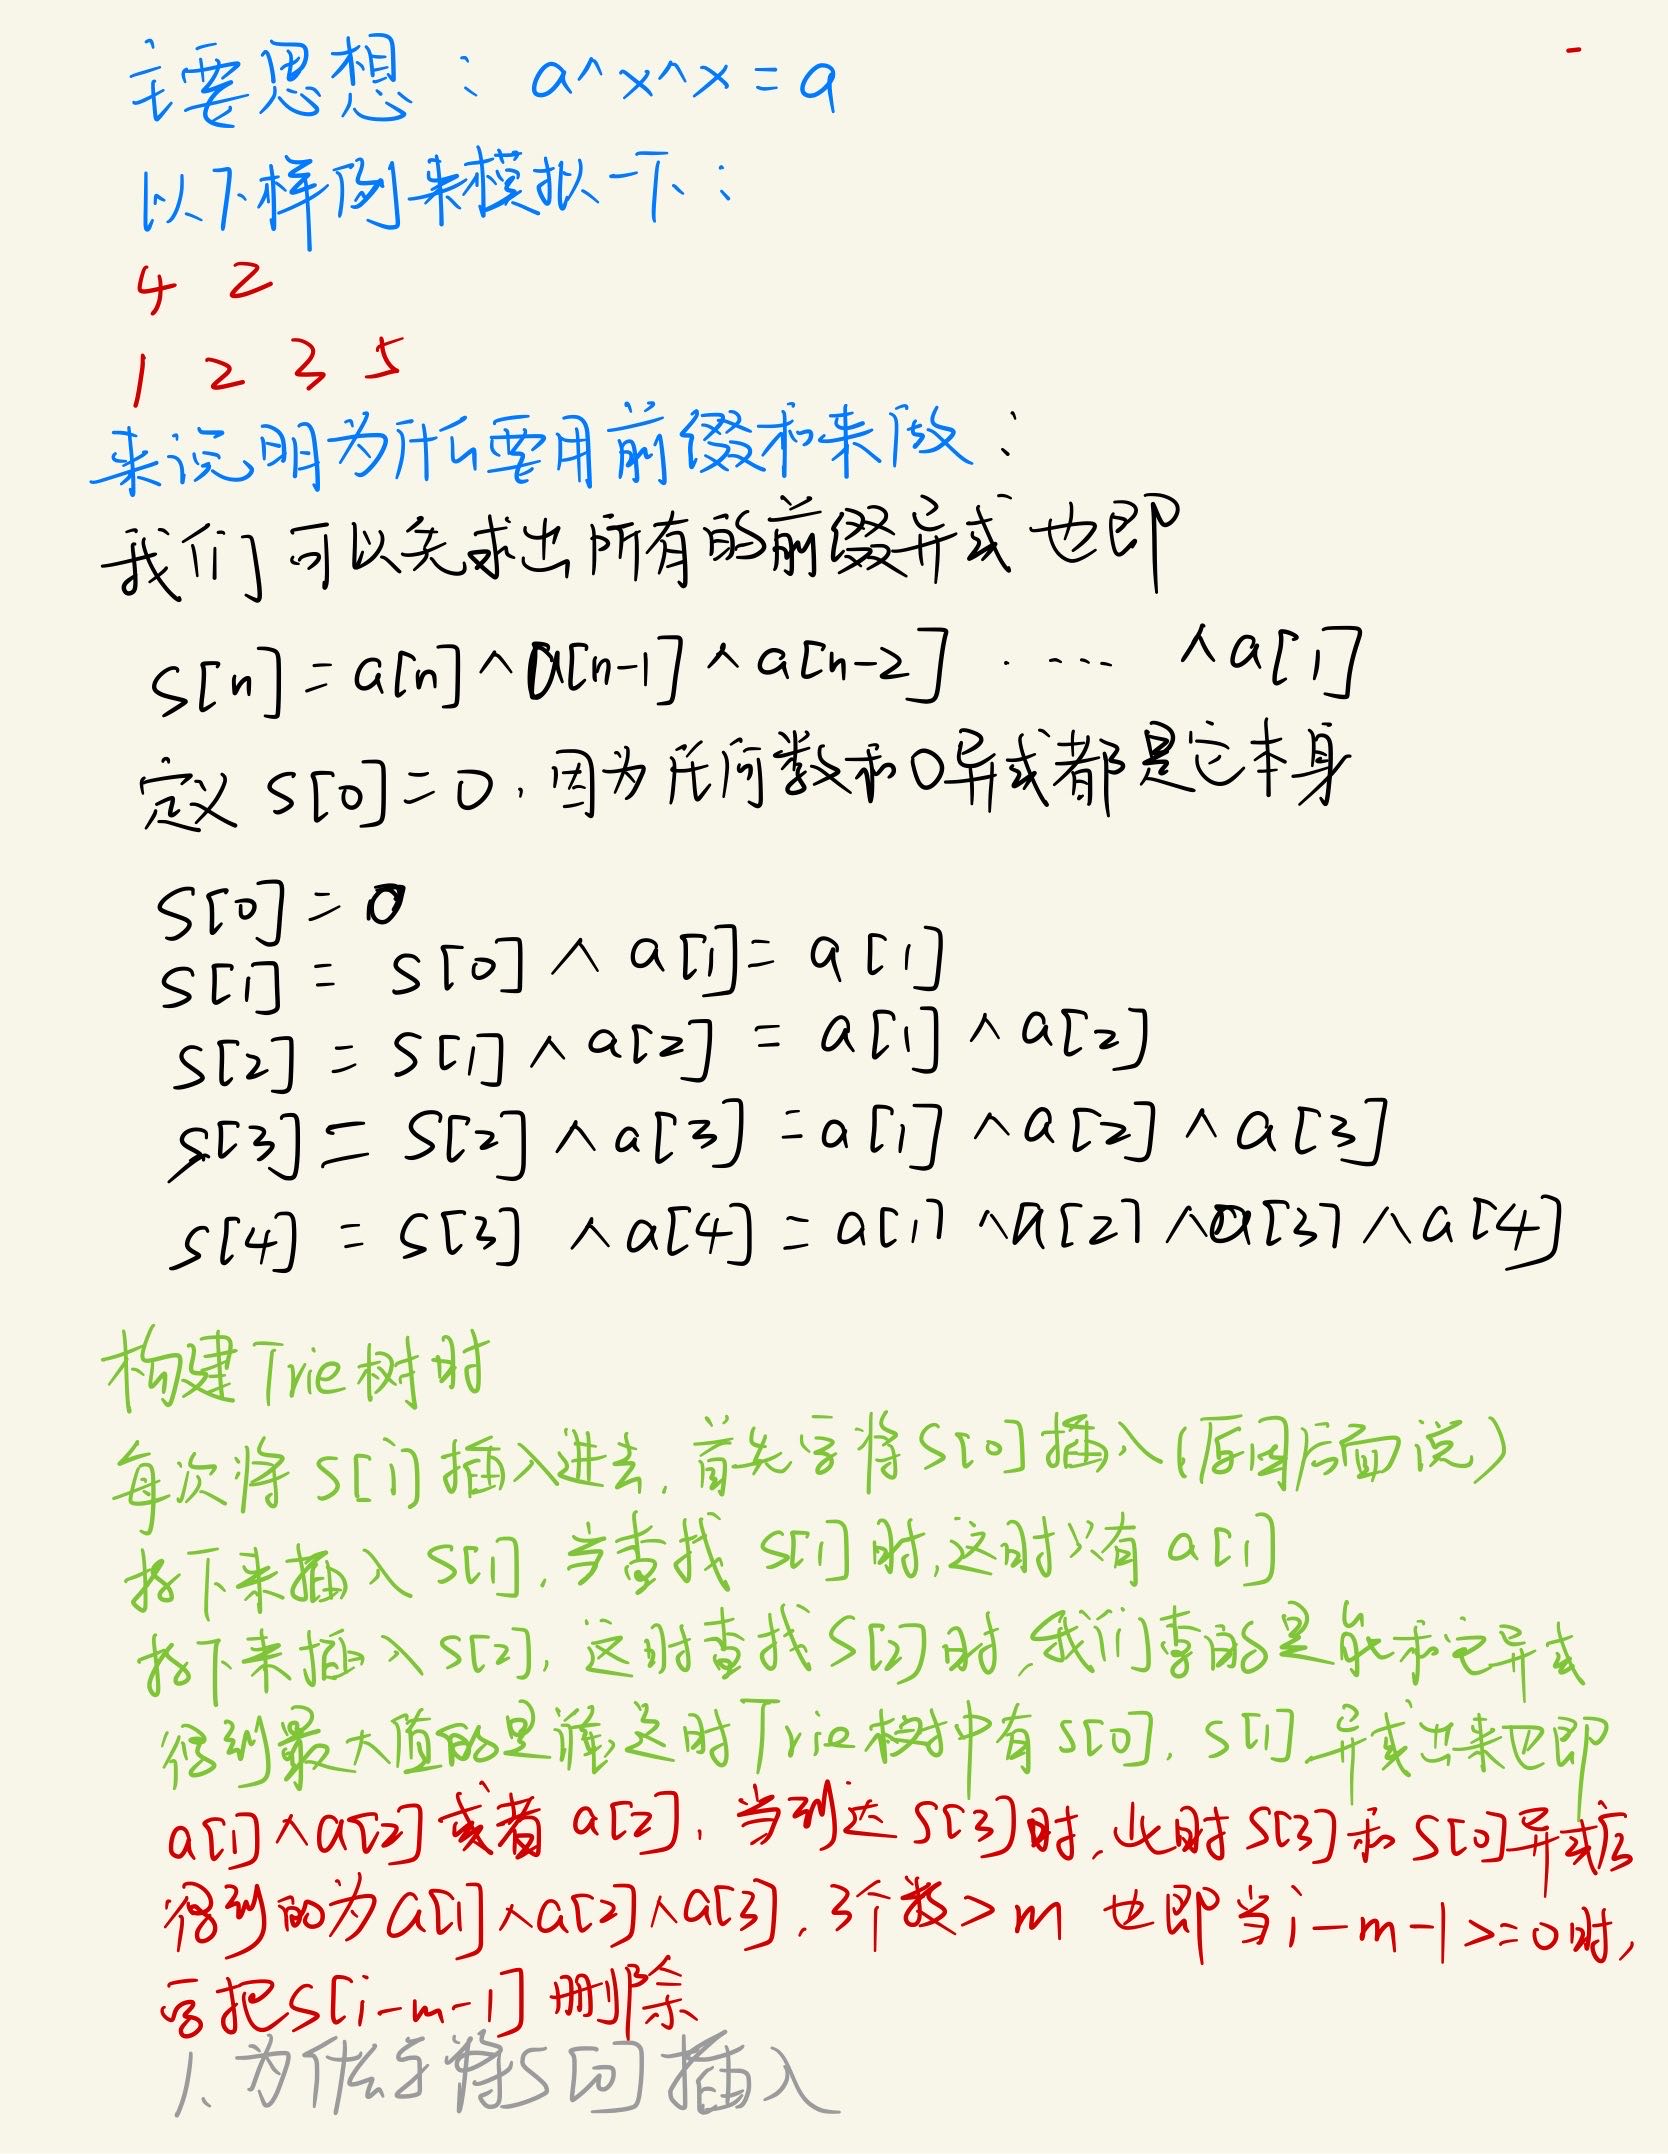 主要思想：a^x^x=a
以下样例来模拟一下：
4 2
1 2 3 5
来说明为什么要用前缀和来做：
我们可以先求出所有的前缀异或也即
S[n]=a[n]^a[n-1]^a[n-2] ..... ^a[1]
定义 S[0]=0，因为任何数和0异或都是它本身
S[0]=0
S[1] = S[0] ^ a[1]= a[1]
S[2] = S[1] ^ a[2] = a[1] ^ a[2]
S[3] = S[2] ^ a[3] = a[1] ^ a[2] ^ a[3]
S[4] = S[3] ^ a[4] = a[1] ^ a[2] ^ a[3] ^ a[4]
构建Trie树时
每次将S[i]插入进去，首先要将S[0]插入(原因后面说)
接下来插入S[1]，当查找S[1]时，这时只有a[1]
接下来插入S[2]，这时查找S[2]时，我们查的是能和它异或
得到最大值的是谁，这时Trie树中有S[0]，S[1]，异或出来也即
a[1]^a[2]或者a[2]，当到达S[3]时，此时S[3]和S[0]异或后
得到的为a[1]^a[2]^a[3]，3个数>m 也即当i-m-1>=0时，
要把S[i-m-1]删除
1、为什么要将S[0]插入